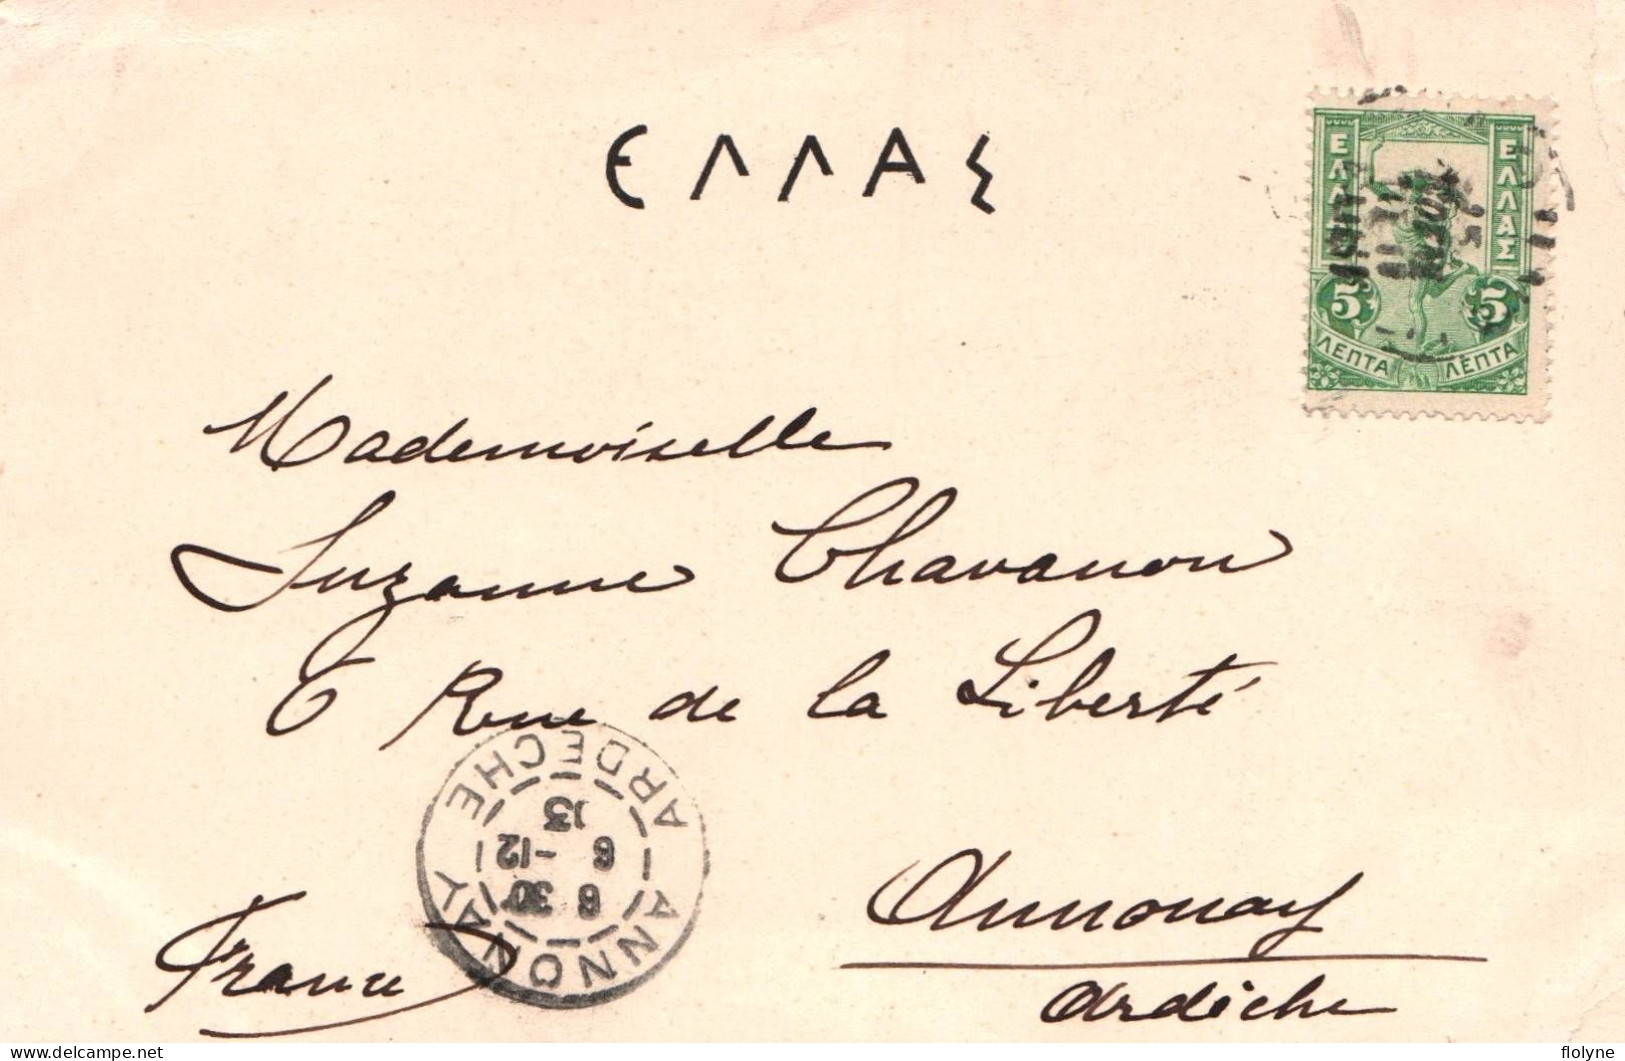 ΕΛΛΑΣ
ΕΛΛΑΣ
5 5
ΛΕΠΤΑ ΛΕΠΤΑ
Mademoiselle
Suzanne Chavanon
6 Rue de la Liberté
Annonay
Ardèche
France
ANNONAY
6 30
6 -12
03
ARDECHE
www.delcampe.net
flolyne